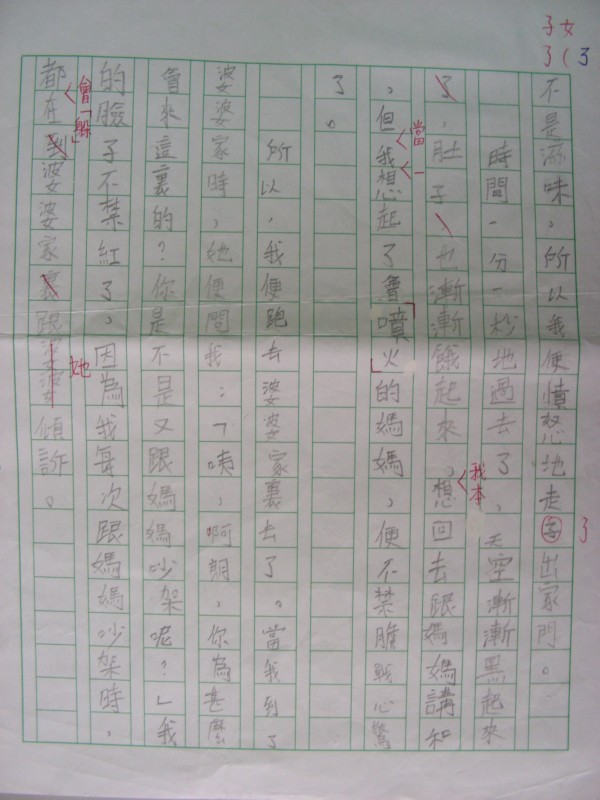 子女
了(了
不是滋味，所以我便憤怒地走了出家門。
了
時間一分一秒地過去了，天空漸漸黑起來
了，肚子也漸漸餓起來。想回去跟媽媽講和
我本
，但我想起了會噴火的媽媽，便不禁膽戰心驚
當一
了。
所以，我便跑去婆婆家裏去了。當我到了
婆婆家時，她便問我：「咦，啊朗，你為甚麼
會來這裏的？你是不是又跟媽媽吵架呢？」我
的臉子不禁紅了，因為我每次跟媽媽吵架時，
都在到婆婆家裏跟婆婆傾訴。
會「躲」
她